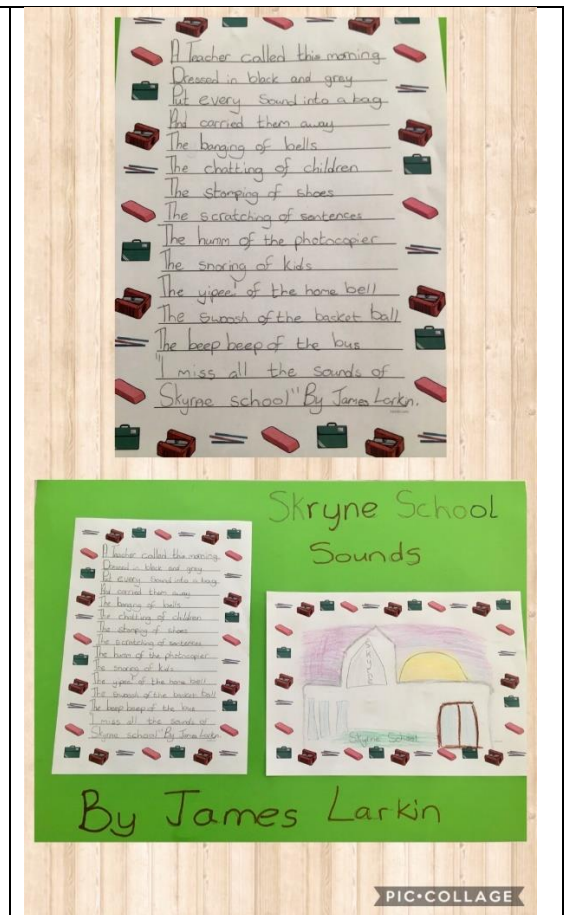 A Teacher called this morning
Dressed in black and grey
Put every Sound into a bag
And carried them away
The banging of bells
The chatting of children
The stomping of shoes
The scratching of sentences
The humm of the photocopier
The snoring of kids
The yipee' of the home bell
The swoosh of the basket ball
The beep beep of the bus
"I miss all the sounds of
Skyrne school" By James Larkin.
Skryne School
Sounds
A Teacher called this morning
Dressed in black and grey
Put every Sound into a bag
And carried them away
The banging of bells
The chatting of children
The stomping of shoes
The scratching of sentences
The humm of the photocopier
The snoring of kids
The yipee' of the home bell
The swoosh of the basket ball
The beep beep of the bus
"I miss all the sounds of
Skyrne school" By James Larkin
Skyrne School
By James Larkin
PIC•COLLAGE